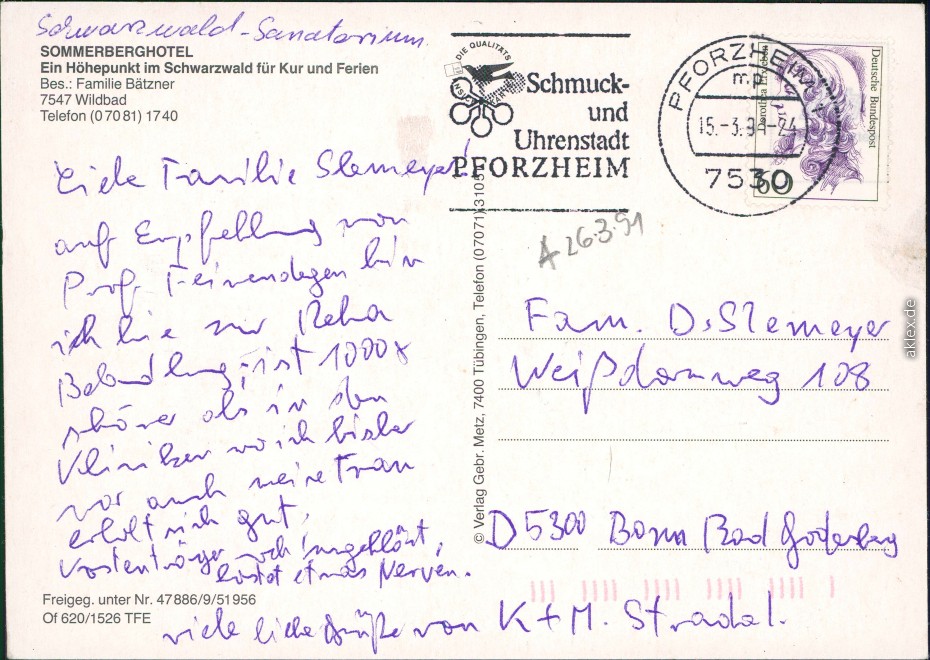 Schwarzwald-Sanatorium
SOMMERBERGHOTEL
Ein Höhepunkt im Schwarzwald für Kur und Ferien
Bes.: Familie Bätzner
7547 Wildbad
Telefon (0 70 81) 17 40
Liebe Familie Slemeyer!
auf Empfehlung von
Prof. Feinendegen bin
ich hie zur Reha
Behandlung, ist 1000x
schöner als in den
Kliniken wo ich bisher
war auch meine Frau
erholt sich gut,
Kostenträger noch ungeklärt,
kostet etwas Nerven.
viele liebe Grüße von K+M. Stradal.
Freigeg. unter Nr. 47886/9/51956
Of 620/1526 TFE
© Verlag Gebr. Metz, 7400 Tübingen, Telefon (07071) 3105
DIE QUALITÄTS
Schmuck-
und
Uhrenstadt
PFORZHEIM
PFORZHEIM 1
mp
15.-3.91-24
7530
Deutsche Bundespost
Dorothea Erxleben
60
A 26.3.91
Fam. D. Slemeyer
Weißdornweg 108
D 5300 Bonn Bad Godesberg
aklex.de